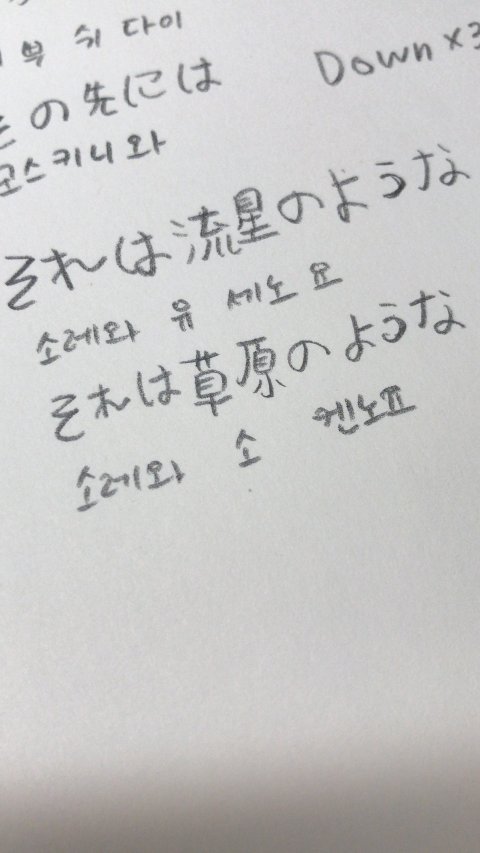 부 쉬 다이
の先には Down ×3
코스키니와
それは流星のような
소레와 유 세노 요
それは草原のような
소레와 소 겐노요